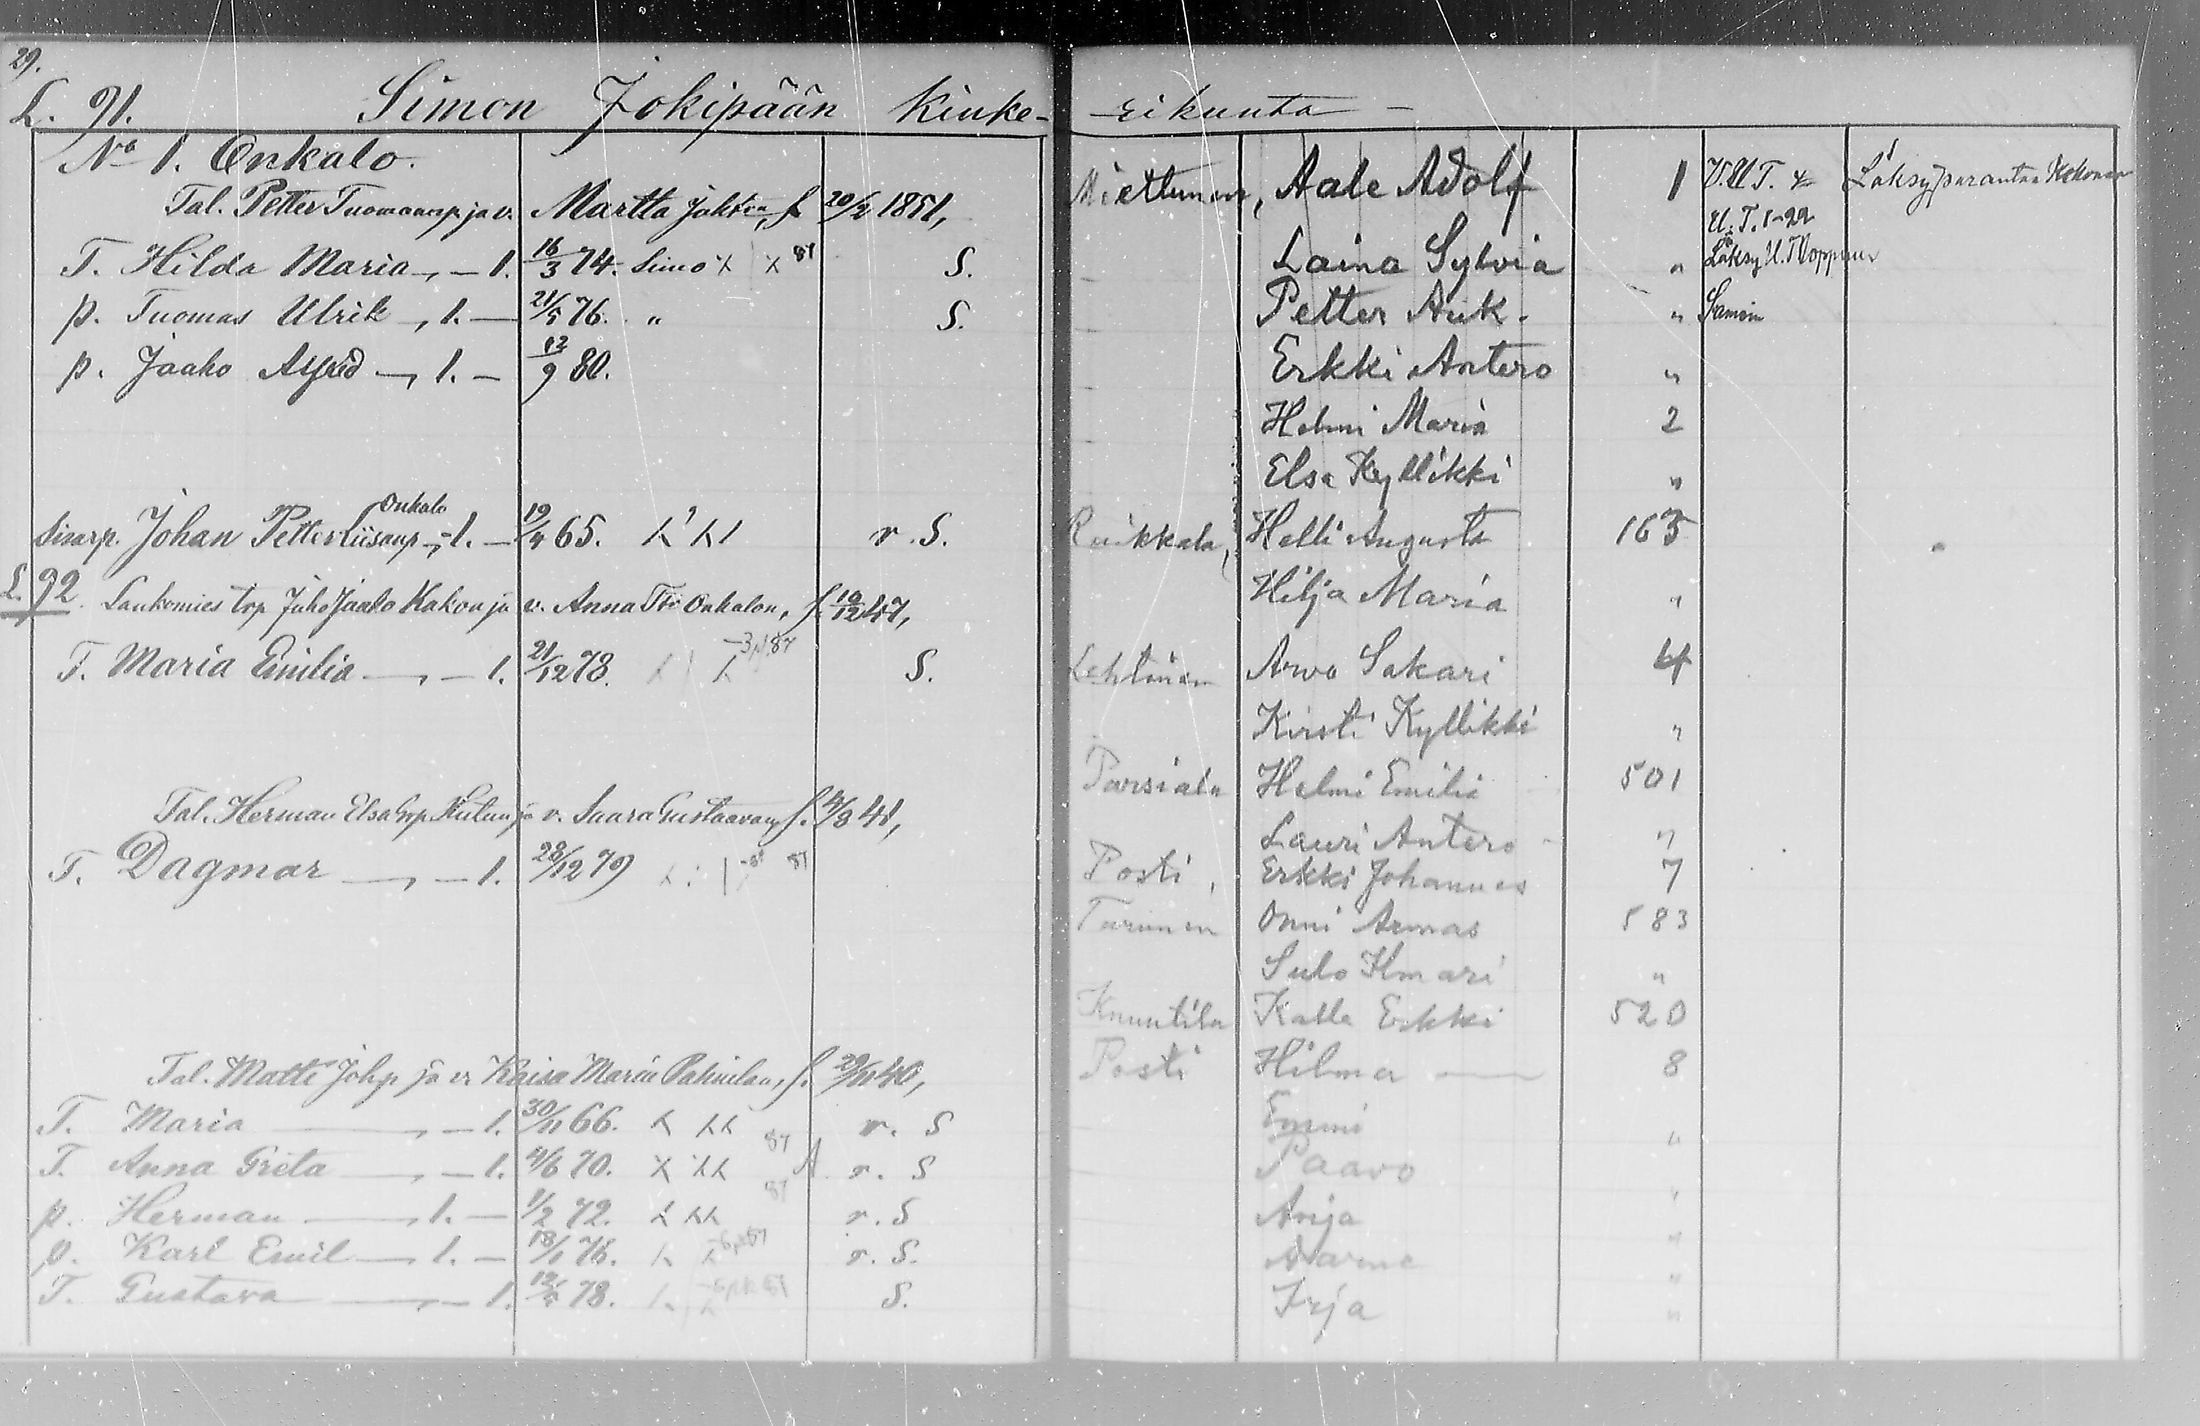 29.
L. 91. Simon Jokipään Kinke-
No 1. Onkalo.
Tal. Petter Tuomaanp. ja v. Martta Jaktr, f. 20/2 1851,
T. Hilda Maria, — 1. 16/3 74. Simo X X 87 S.
p. Tuomas Ulrik, 1. — 21/5 76. " S.
p. Jaako Alfred, 1. — 12/9 80.
Onkalo
Sisarp. Johan Petter Liisanp, 1. — 19/4 65. r. S.
L. 92. Lankomies trp Juho Jaako Kakon ja v. Anna Onkalon, f. 10/12 47,
T. Maria Emilia, — 1. 21/12 78. 87 S.
Tal. Herman ja v. Saara Gustaavan, f. 4/8 41,
T. Dagmar, — 1. 28/12 79 87
Tal. Matti Johp ja v. Kaisa Maria Palinilan, f. 29/11 40,
T. Maria, — 1. 30/11 66. r. S
T. Anna Greta, — 1. 4/6 70. 87 A. r. S
p. Herman, 1. — 1/2 72. 87 r. S
p. Karl Emil, 1. — 18/1 76. r. S.
T. Gustava, — 1. 12/5 78. S.
rikunta —
Miettunen, Aale Adolf 1 V.U.T. &
U.T. 1-22
Laina Sylvia "
Petter Auk. "
Erkki Antero "
Helmi Maria 2
Elsa Kyllikki "
Ruikkala, Helli Augusta 165
Hilja Maria "
Lehtinen Arvo Sakari 4
Kirsti Kyllikki "
Parsiala Helmi Emilia 501
Lauri Antero "
Posti, Erkki Johannes 7
Turunen Onni Armas 583
Sulo Ilmari "
Knuutila Kalle Erkki 520
Posti Hilma — 8
Emmi "
Paavo "
Anja "
Aarne "
Irja "